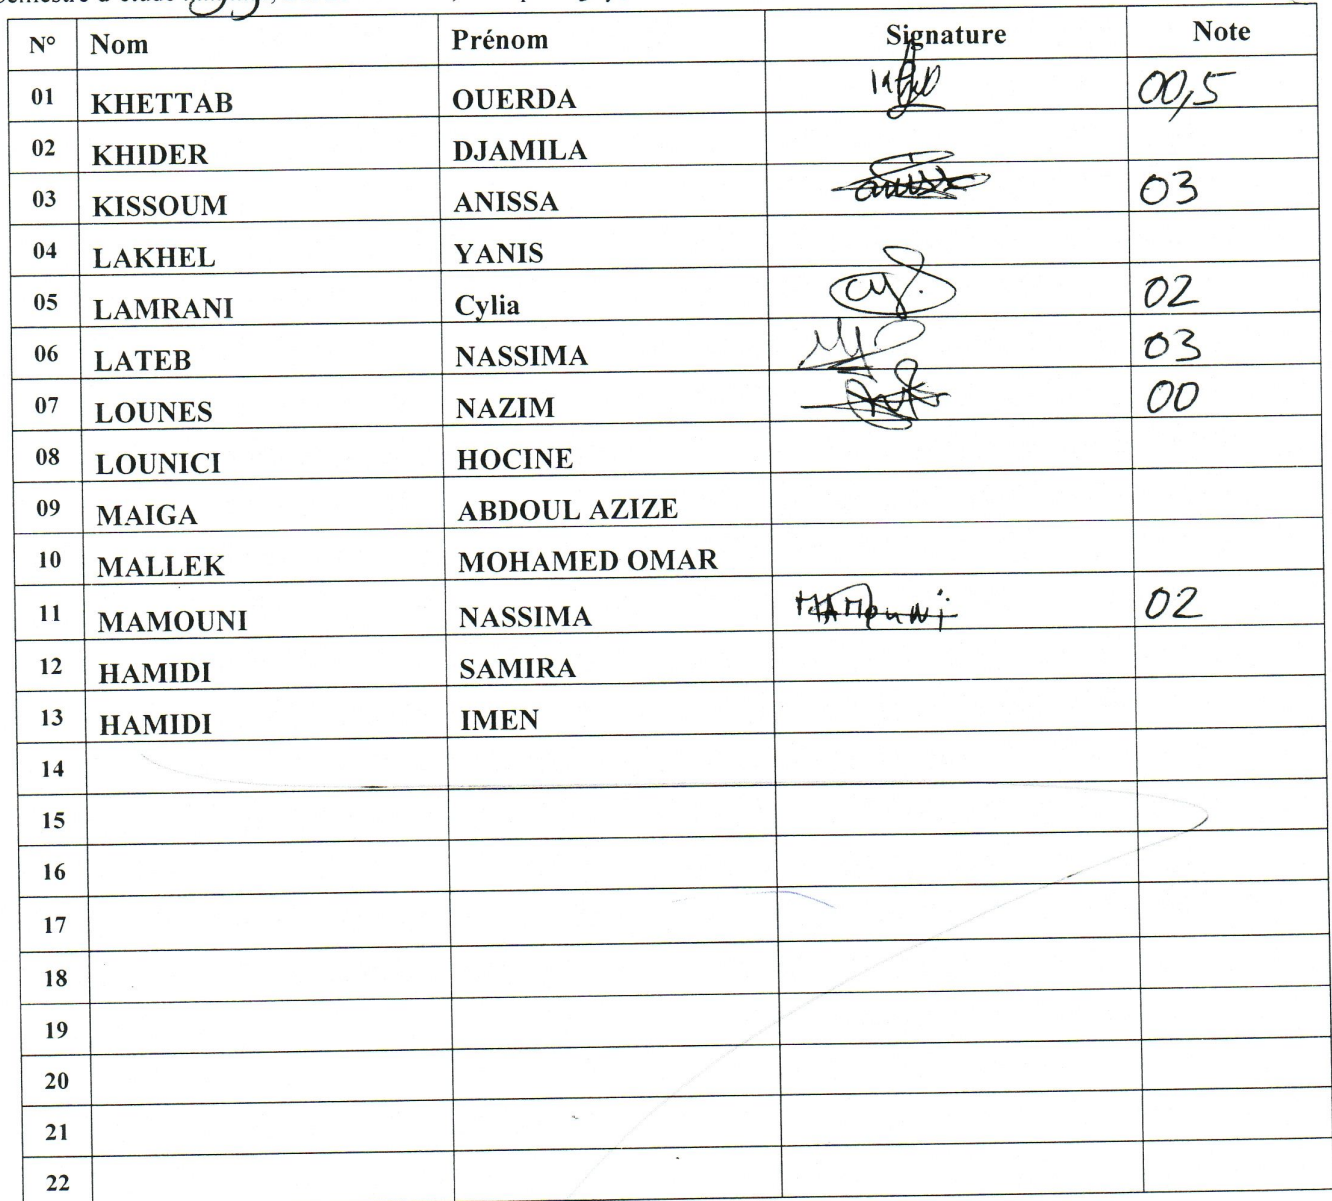 N° Nom Prénom Signature Note
01 KHETTAB OUERDA 00,5
02 KHIDER DJAMILA
03 KISSOUM ANISSA 03
04 LAKHEL YANIS
05 LAMRANI Cylia 02
06 LATEB NASSIMA 03
07 LOUNES NAZIM 00
08 LOUNICI HOCINE
09 MAIGA ABDOUL AZIZE
10 MALLEK MOHAMED OMAR
11 MAMOUNI NASSIMA MAMOUNI 02
12 HAMIDI SAMIRA
13 HAMIDI IMEN
14
15
16
17
18
19
20
21
22